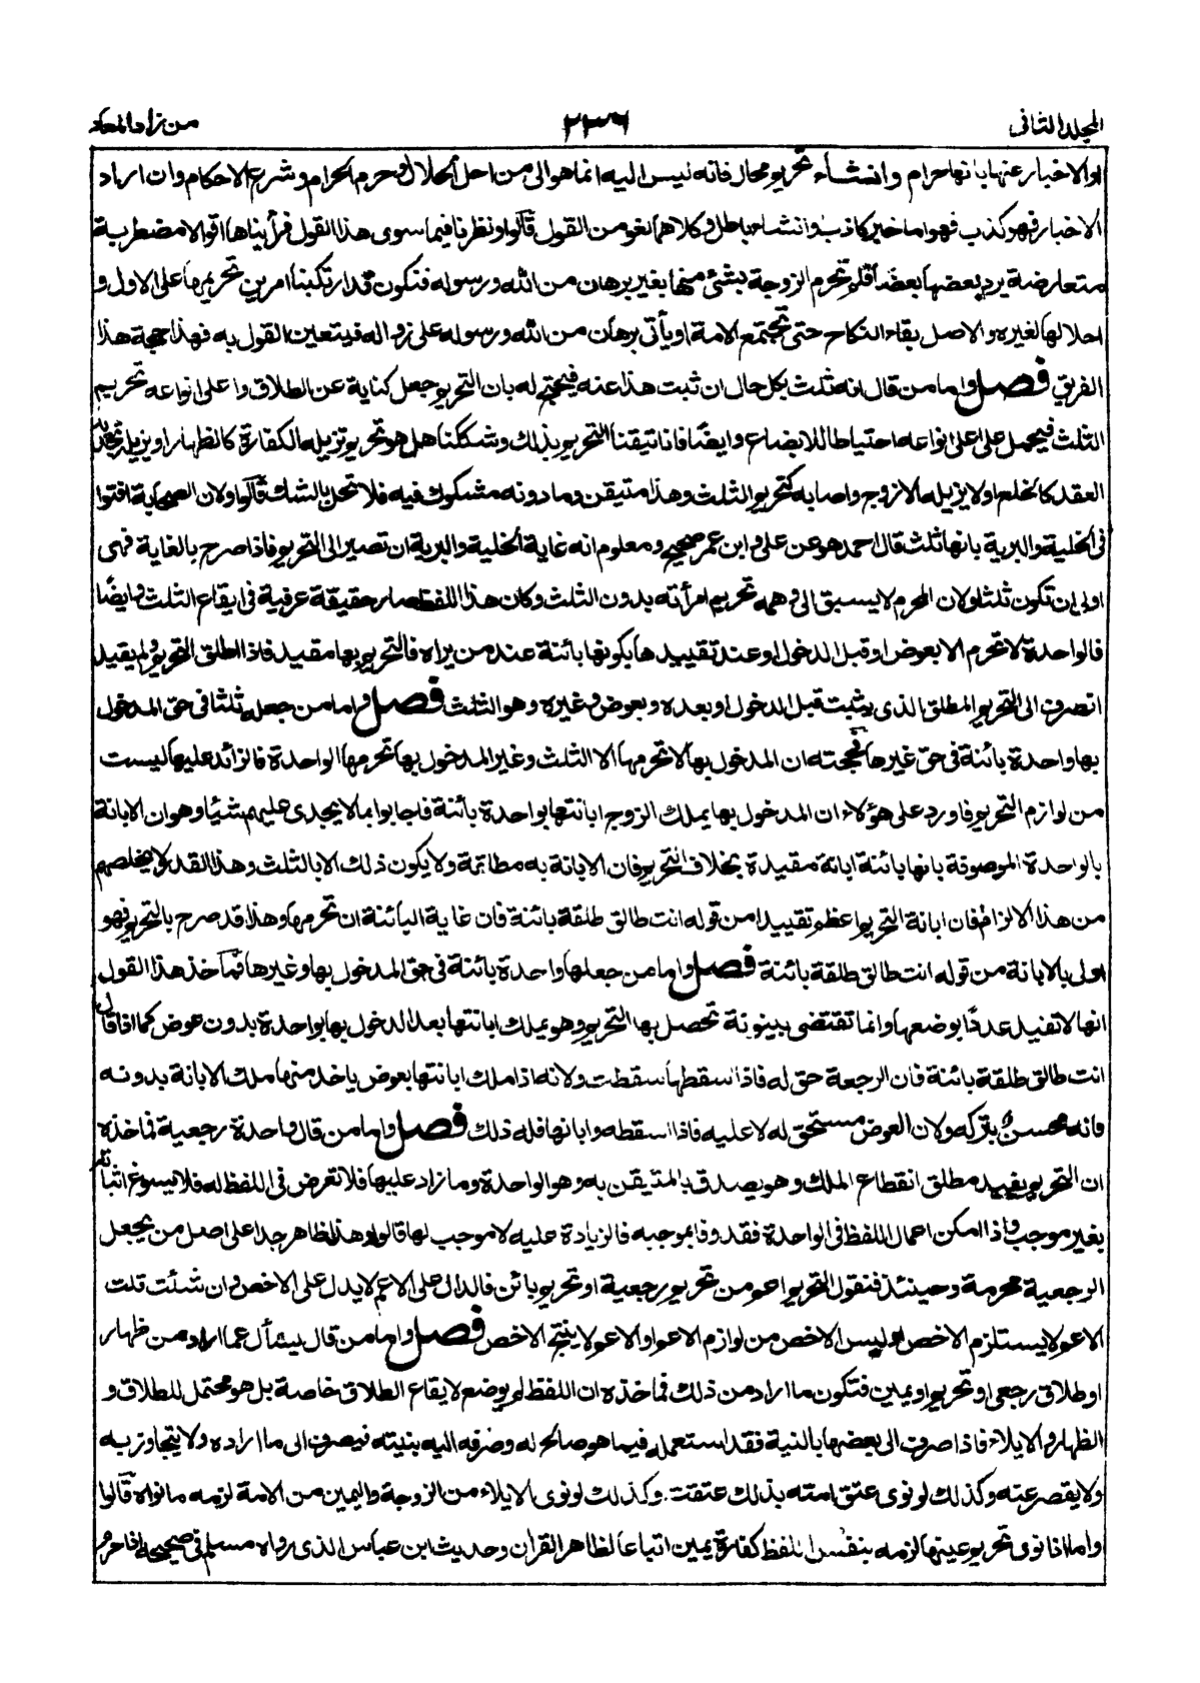 المجلد الثانى
٢٣٦
من زاد المعاد
او الاخبار عنها بانها حرام وانشاء تحريم محال فانه ليس اليه انما هو الى من احل الحلال وحرم الحرام وشرع الاحكام وان اراد
الاخبار فهو كذب فهو اما خبر كاذب او انشاء باطل وكلاهما لغو من القول قالوا ونظرنا فيما سوى هذا القول فرأيناها اقوالا مضطربة
متعارضة يرد بعضها بعضا فلم نحرم الزوجة بشئ منها بغير برهان من الله ورسوله فنكون قد ارتكبنا امرين تحريمها على الاول و
احلالها لغيره والاصل بقاء النكاح حتى تجتمع الامة او يأتى برهان من الله ورسوله على زواله فيتعين القول به فهذا حجة هذا
الفريق فصل واما من قال انه ثلث بكل حال ان ثبت هذا عنه فيحتج له بان التحريم جعل كناية عن الطلاق واعلى انواعه تحريم
الثلث فيحمل على اعلى انواعه احتياطا للابضاع وايضا فانا تيقنا التحريم بذلك وشككنا هل هو تحريم تزيله الكفارة كالظهار او يزيله تجديد
العقد كالخلع او لا يزيله الا زوج واصابة كتحريم الثلث وهذا متيقن وما دونه مشكوك فيه فلا تحل بالشك قالوا ولان الصحابة افتوا
فى الخلية والبرية بانها ثلث قال احمد هو عن على وابن عمر صحيح ومعلوم انه غاية الخلية والبرية ان تصير الى التحريم فاذا صرح بالغاية فهى
اولى ان تكون ثلثا ولان المحرم لا يسبق الى وهمه تحريم امرأته بدون الثلث وكان هذا اللفظ صار حقيقة عرفية فى ايقاع الثلث وايضا
فالواحدة لا تحرم الا بعوض او قبل الدخول او عند تقييدها بكونها بائنة عند من يراه فالتحريم بها مقيد فاذا اطلق التحريم ولم يقيد
انصرف الى التحريم المطلق الذى يثبت قبل الدخول او بعده وبعوض وغيره وهو الثلث فصل واما من جعله ثلثا فى حق المدخول
بها وواحدة بائنة فى حق غيرها فحجته ان المدخول بها لا تحرمها الا الثلث وغير المدخول بها تحرمها الواحدة فالزائد عليها ليست
من لوازم التحريم فاورد على هؤلاء ان المدخول بها يملك الزوج ابانتها بواحدة بائنة فاجابوا بما لا يجدى عليهم شيئا وهو ان الابانة
بالواحدة الموصوفة بانها بائنة ابانة مقيدة بخلاف التحريم فان الابانة به مطلقة ولا يكون ذلك الا بالثلث وهذا القدر لا يخلصهم
من هذا الالزام فان ابانة التحريم اعظم تقييدا من قوله انت طالق طلقة بائنة فان غاية البائنة ان تحرمها وهذا قد صرح بالتحريم فهو
اولى بالابانة من قوله انت طالق طلقة بائنة فصل واما من جعلها واحدة بائنة فى حق المدخول بها وغيرها فمأخذ هذا القول
انها لا تفيد عددا بوضعها وانما تقتضى بينونة تحصل بها التحريم وهو يملك ابانتها بعد الدخول بها بواحدة بدون عوض كما اذا قال
انت طالق طلقة بائنة فان الرجعة حق له فاذا اسقطها سقطت ولانه اذا ملك ابانتها بعوض ياخذ منها ملك الابانة بدونه
فانه محسن بتركه ولان العوض مستحق له لا عليه فاذا اسقطه وابانها فله ذلك فصل واما من قال واحدة رجعية فماخذه
ان التحريم يفيد مطلق انقطاع الملك وهو يصدق بالمتيقن به وهو الواحدة وما زاد عليها فلا تعرض فى اللفظ له فلا يسوغ اثباته
بغير موجب واذا امكن اعمال اللفظ فى الواحدة فقد وفا بموجبه فالزيادة عليه لا موجب لها قالوا وهذا ظاهر جدا على اصل من يجعل
الرجعية محرمة وحينئذ فنقول التحريم اعم من تحريم رجعية او تحريم بائن فالدال على الاعم لا يدل على الاخص وان شئت قلت
الاعم لا يستلزم الاخص او ليس الاخص من لوازم الاعم او الاعم لا ينتج الاخص فصل واما من قال يسأل عما اراد من ظهار
او طلاق رجعى او تحريم او يمين فتكون ما اراد من ذلك فماخذه ان اللفظ لم يوضع لايقاع الطلاق خاصة بل هو محتمل للطلاق و
الظهار والايلاء فاذا صرف الى بعضها بالنية فقد استعمله فيما هو صالح له وصرفه اليه بنيته فيصرف الى ما اراده ولا يتجاوز به
ولا يقصر عنه وكذلك لو نوى عتق امته بذلك عتقت وكذلك لو نوى الايلاء من الزوجة واليمين من الامة لزمه ما نواه قالوا
واما اذا نوى تحريم عينها لزمه بنفس اللفظ كفارة يمين اتباعا لظاهر القرآن وحديث ابن عباس الذى رواه مسلم فى صحيحه اذا حرم